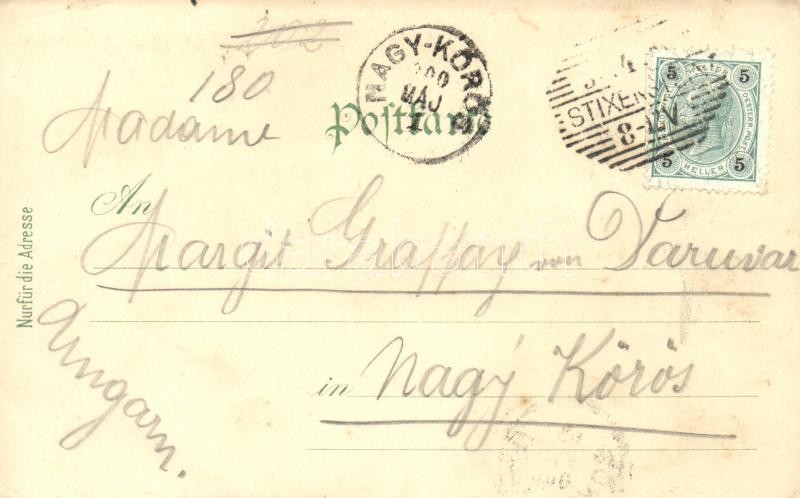 202
180
Madame
Postkarte
MAGY-KŐRÖS
900
MÁJ
1
4
STIXEN
8-12V
5 5
OESTERR. POST
5 5
HELLER
An
Margit Graffay von Daruvar
in Nagy Körös
Ungarn.
Nur für die Adresse